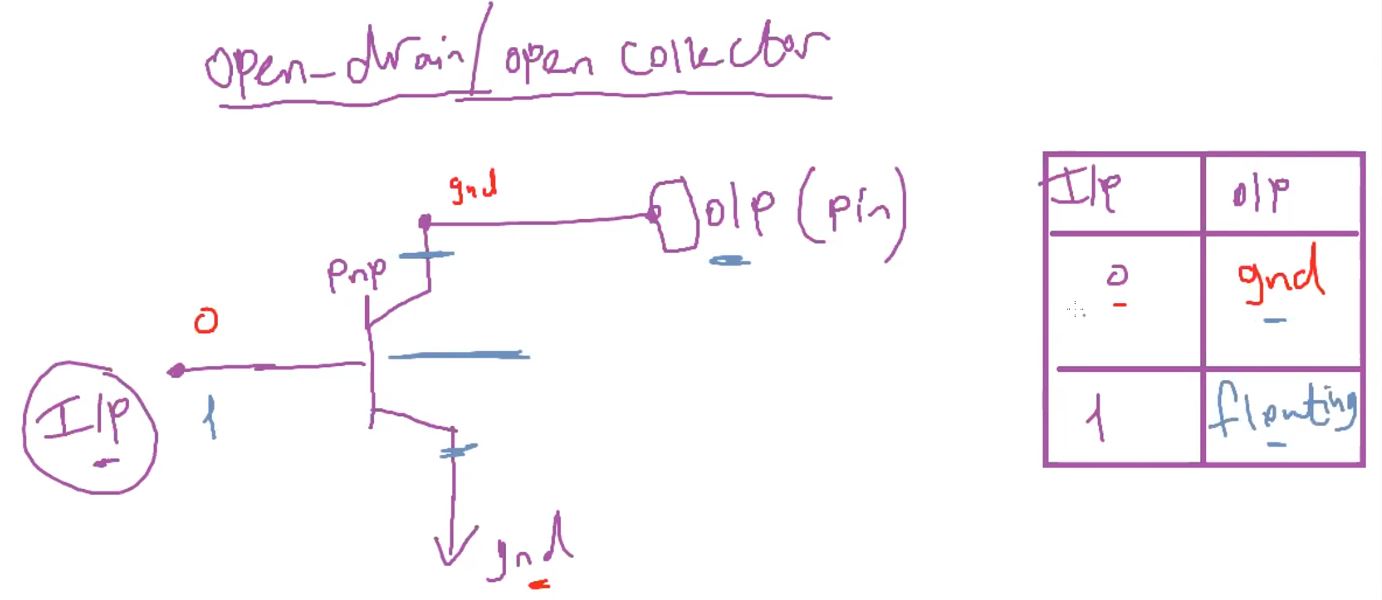 open-drain/open collector
gnd
O/P (pin)
pnp
0
I/P
1
gnd
I/P O/P
0 gnd
1 floating